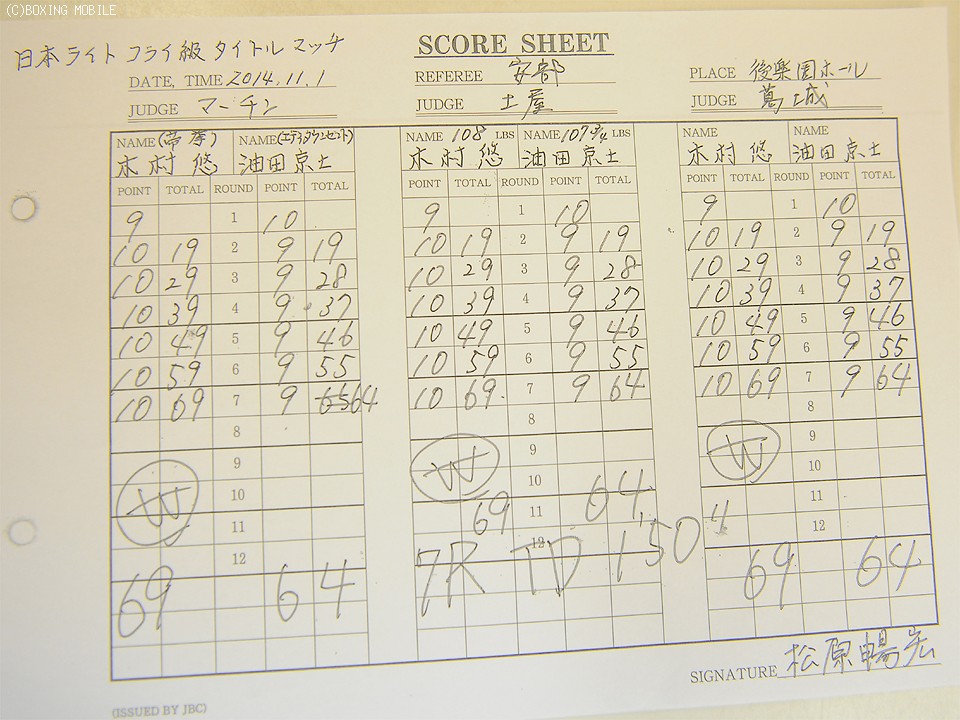 (C)BOXING MOBILE
日本ライトフライ級タイトルマッチ
SCORE SHEET
DATE, TIME 2014.11.1 REFEREE 安部 PLACE 後楽園ホール
JUDGE マーチン JUDGE 土屋 JUDGE 葛城
NAME (帝拳) NAME (エディタウンゼント) NAME 108 LBS NAME 107 3/4 LBS NAME NAME
木村 悠 油田京士 木村 悠 油田京士 木村 悠 油田京士
POINT TOTAL ROUND POINT TOTAL POINT TOTAL ROUND POINT TOTAL POINT TOTAL ROUND POINT TOTAL
9 1 10 9 1 10 9 1 10
10 19 2 9 19 10 19 2 9 19 10 19 2 9 19
10 29 3 9 28 10 29 3 9 28 10 29 3 9 28
10 39 4 9 37 10 39 4 9 37 10 39 4 9 37
10 49 5 9 46 10 49 5 9 46 10 49 5 9 46
10 59 6 9 55 10 59 6 9 55 10 59 6 9 55
10 69 7 9 64 10 69 7 9 64 10 69 7 9 64
8 8 8
9 9 9
W 10 W 10 W 10
11 69 11 64 11
12 12 12
69 64 7R TD 1'50 69 64
SIGNATURE 松原暢宏
(ISSUED BY JBC)